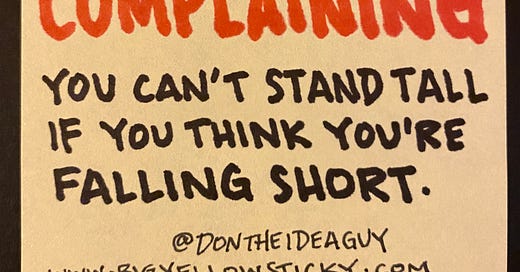 COMPLAINING
YOU CAN'T STAND TALL
IF YOU THINK YOU'RE
FALLING SHORT.
@DONTHEIDEAGUY
WWW.BIGYELLOWSTICKY.COM